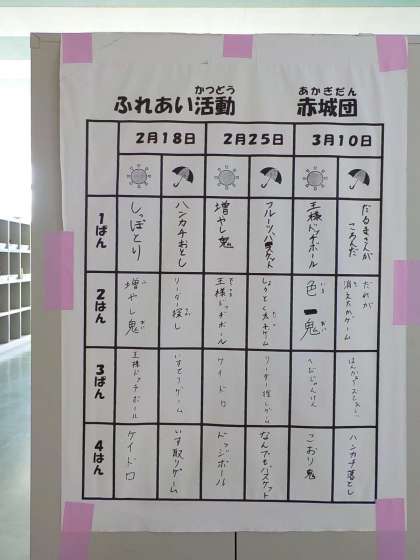 かつどう
ふれあい活動
あかぎだん
赤城団
2月18日 2月25日 3月10日
1ぱん
しっぽとり
ハンカチおとし
増やし鬼
フルーツバスケット
王様ドッチボール
だるまさんが
ころんだ
2はん
増やし鬼
リーダー探し
王様ドッチボール
色鬼
だれが
消えたかゲーム
3ぱん
王様ドッチボール
いすとりゲーム
ケイドロ
リーダー探しゲーム
へびじゃんけん
4はん
ケイドロ
いす取りゲーム
ドッジボール
なんでもバスケット
こおり鬼
ハンカチ落とし